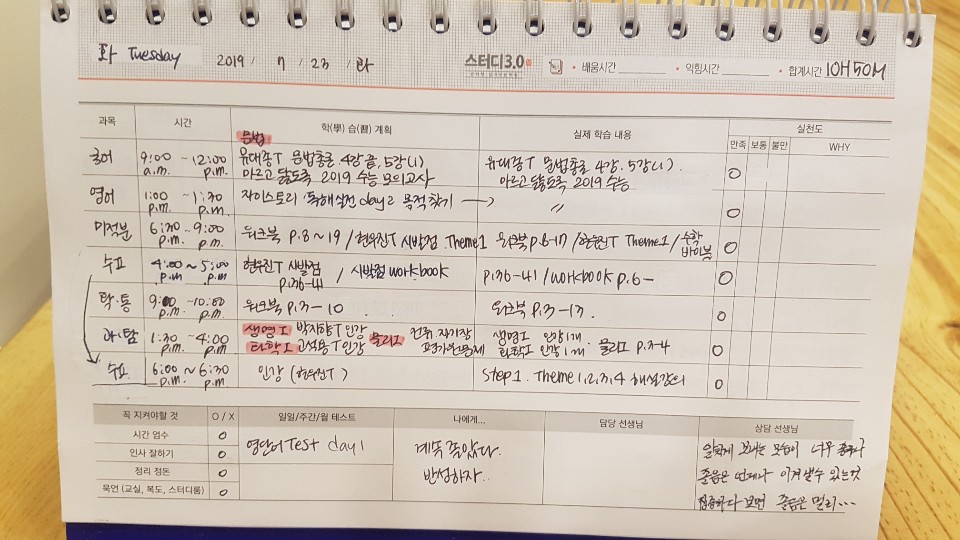 화 Tuesday 2019 / 7 / 23 / 화 스터디3.0 • 배움시간 • 익힘시간 • 합계시간 10H 50M
과목 시간 학(學) 습(習) 계획 실제 학습 내용 실천도
만족 보통 불만 WHY
문법
국어 9:00 a.m. ~ 12:00 p.m. 유대종T 문법총론 4강 끝, 5강(1) 유대종T 문법총론 4강, 5강(1). O
마르고 닳도록 2019 수능 모의고사 마르고 닳도록 2019 수능
영어 1:00 p.m. ~ 1:30 p.m. 자이스토리 독해실전 day2 목적 찾기 → 〃 O
미적분 6:30 p.m. ~ 9:00 p.m. 워크북 p.8~19 / 현우진T 시발점 Theme1 워크북 p.8-17 / 현우진T Theme1 / 수학 바이블 O
수Ⅱ 4:00 p.m ~ 5:00 p.m 현우진T 시발점 p.36-41 / 시발점 workbook p.36-41 / workbook p.6- O
확·통 9:00 p.m. ~ 10:00 p.m. 워크북 p.3-10 워크북 p.3-13. O
과·탐 1:30 p.m. ~ 4:00 p.m. 생명Ⅰ 박지향T 인강 물리Ⅰ 전류 자기장 생명Ⅰ 인강 1개 물리Ⅰ p.3-4 O
화학Ⅰ 고석용T 인강 평가원문제 화학Ⅰ 인강 1개.
6:00 p.m. ~ 6:30 p.m 인강 (현우진T) Step1. Theme 1,2,3,4 해설강의 O
꼭 지켜야할 것 O / X 일일/주간/월 테스트 나에게... 담당 선생님 상담 선생님
시간 엄수 O 영단어 Test day 1 계속 졸았다. 보내는 모습이 너무
인사 잘하기 O 반성하자.. 졸음은 언제나 이겨낼 수 있는 것
정리 정돈 O 집중하다 보면 졸음은 멀리...
묵언 (교실, 복도, 스터디룸) O